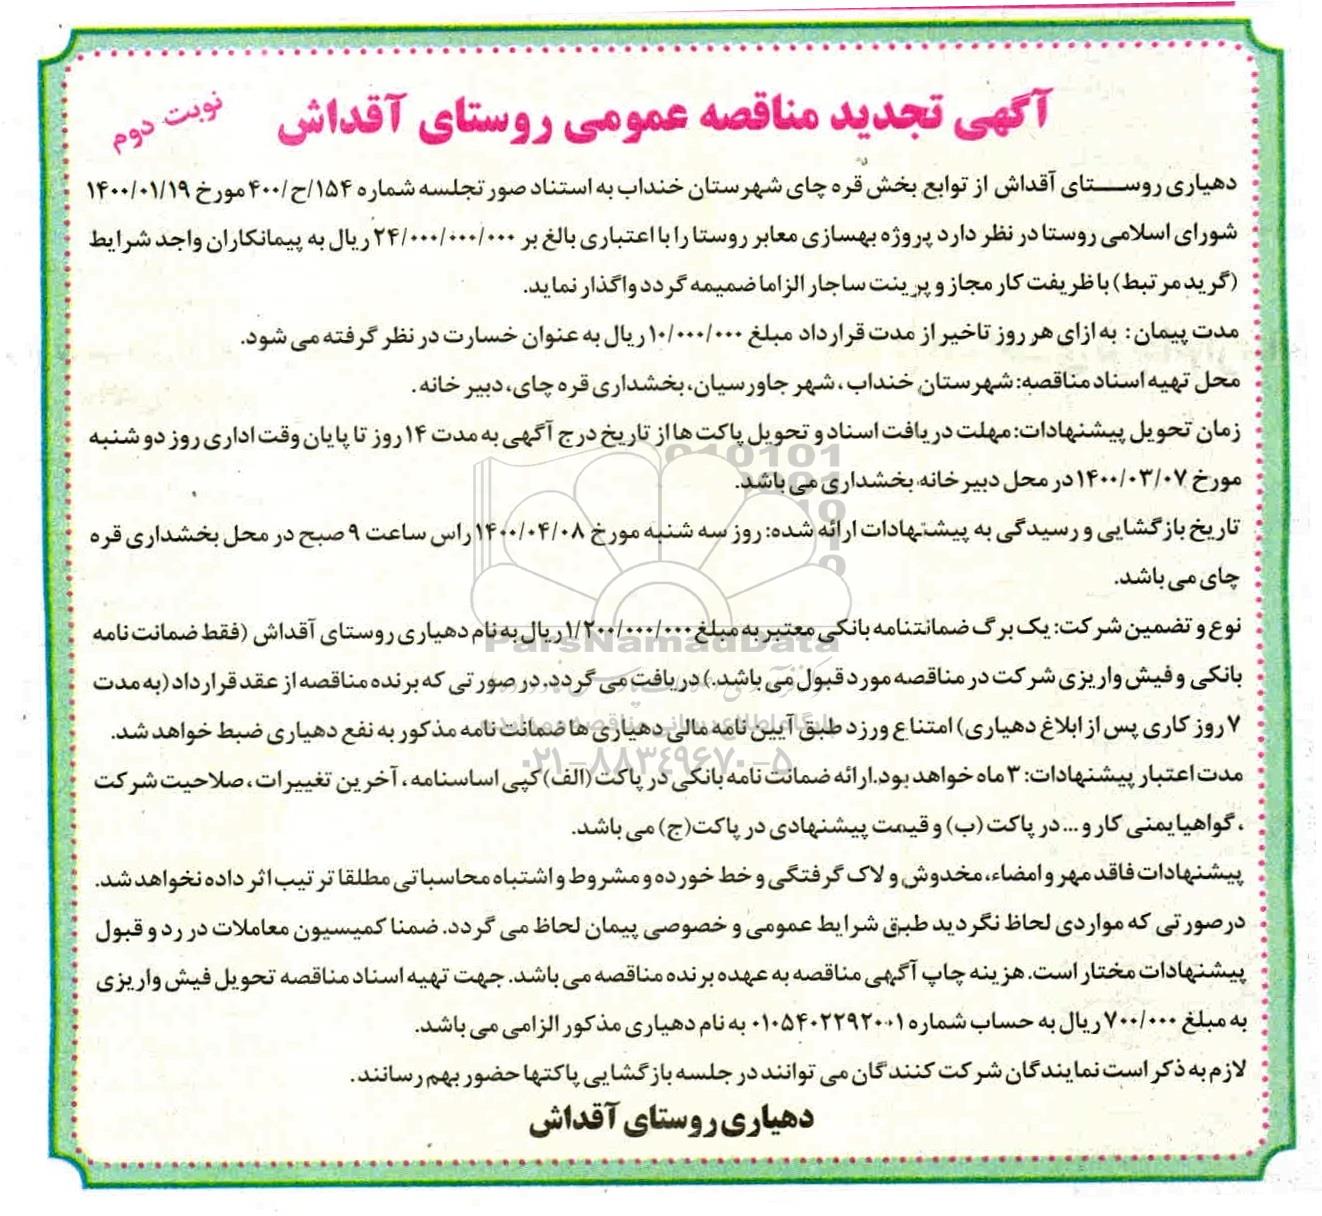 آگهی تجدید مناقصه عمومی روستای آقداش
نوبت دوم
دهیاری روستای آقداش از توابع بخش قره چای شهرستان خنداب به استناد صورتجلسه شماره ۱۵۴/ح/۴۰۰ مورخ ۱۴۰۰/۰۱/۱۹
شورای اسلامی روستا در نظر دارد پروژه بهسازی معابر روستا را با اعتباری بالغ بر ۲۴/۰۰۰/۰۰۰/۰۰۰ ریال به پیمانکاران واجد شرایط
(گرید مرتبط) با ظریفت کار مجاز و پرینت ساجار الزاما ضمیمه گردد واگذار نماید.
مدت پیمان: به ازای هر روز تاخیر از مدت قرارداد مبلغ ۱۰/۰۰۰/۰۰۰ ریال به عنوان خسارت در نظر گرفته می شود.
محل تهیه اسناد مناقصه: شهرستان خنداب، شهر جاورسیان، بخشداری قره چای، دبیر خانه.
زمان تحویل پیشنهادات: مهلت دریافت اسناد و تحویل پاکت ها از تاریخ درج آگهی به مدت ۱۴ روز تا پایان وقت اداری روز دو شنبه
مورخ ۱۴۰۰/۰۳/۰۷ در محل دبیر خانه بخشداری می باشد.
تاریخ بازگشایی و رسیدگی به پیشنهادات ارائه شده: روز سه شنبه مورخ ۱۴۰۰/۰۴/۰۸ راس ساعت ۹ صبح در محل بخشداری قره
چای می باشد.
نوع و تضمین شرکت: یک برگ ضمانتنامه بانکی معتبر به مبلغ ۱/۲۰۰/۰۰۰/۰۰۰ ریال به نام دهیاری روستای آقداش (فقط ضمانت نامه
بانکی و فیش واریزی شرکت در مناقصه مورد قبول می باشد.) دریافت می گردد. در صورتی که برنده مناقصه از عقد قرارداد (به مدت
۷ روز کاری پس از ابلاغ دهیاری) امتناع ورزد طبق آیین نامه مالی دهیاری ها ضمانت نامه مذکور به نفع دهیاری ضبط خواهد شد.
مدت اعتبار پیشنهادات: ۳ ماه خواهد بود. ارائه ضمانت نامه بانکی در پاکت (الف) کپی اساسنامه، آخرین تغییرات، صلاحیت شرکت
، گواهیایمنی کار و ... در پاکت (ب) و قیمت پیشنهادی در پاکت (ج) می باشد.
پیشنهادات فاقد مهر و امضاء، مخدوش و لاک گرفتگی و خط خورده و مشروط و اشتباه محاسباتی مطلقا ترتیب اثر داده نخواهد شد.
درصورتی که مواردی لحاظ نگردید طبق شرایط عمومی و خصوصی پیمان لحاظ می گردد. ضمنا کمیسیون معاملات در رد و قبول
پیشنهادات مختار است. هزینه چاپ آگهی مناقصه به عهده برنده مناقصه می باشد. جهت تهیه اسناد مناقصه تحویل فیش واریزی
به مبلغ ۷۰۰/۰۰۰ ریال به حساب شماره ۰۱۰۵۴۰۲۲۹۲۰۰۱ به نام دهیاری مذکور الزامی می باشد.
لازم به ذکر است نمایندگان شرکت کنندگان می توانند در جلسه بازگشایی پاکتها حضور بهم رسانند.
دهیاری روستای آقداش
ParsNamadData
پایگاه اطلاع رسانی مناقصه و مزایده
۰۲۱-۸۸۳۴۹۶۷۰-۵